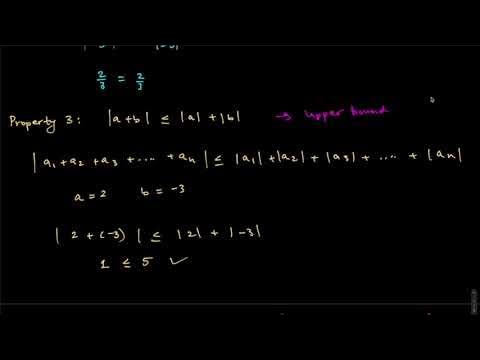 2/3 = 2/3
Property 3: |a+b| ≤ |a| + |b| → upper bound
|a₁ + a₂ + a₃ + ..... + aₙ| ≤ |a₁| + |a₂| + |a₃| + ..... + |aₙ|
a = 2 b = -3
|2 + (-3)| ≤ |2| + |-3|
1 ≤ 5 ✓